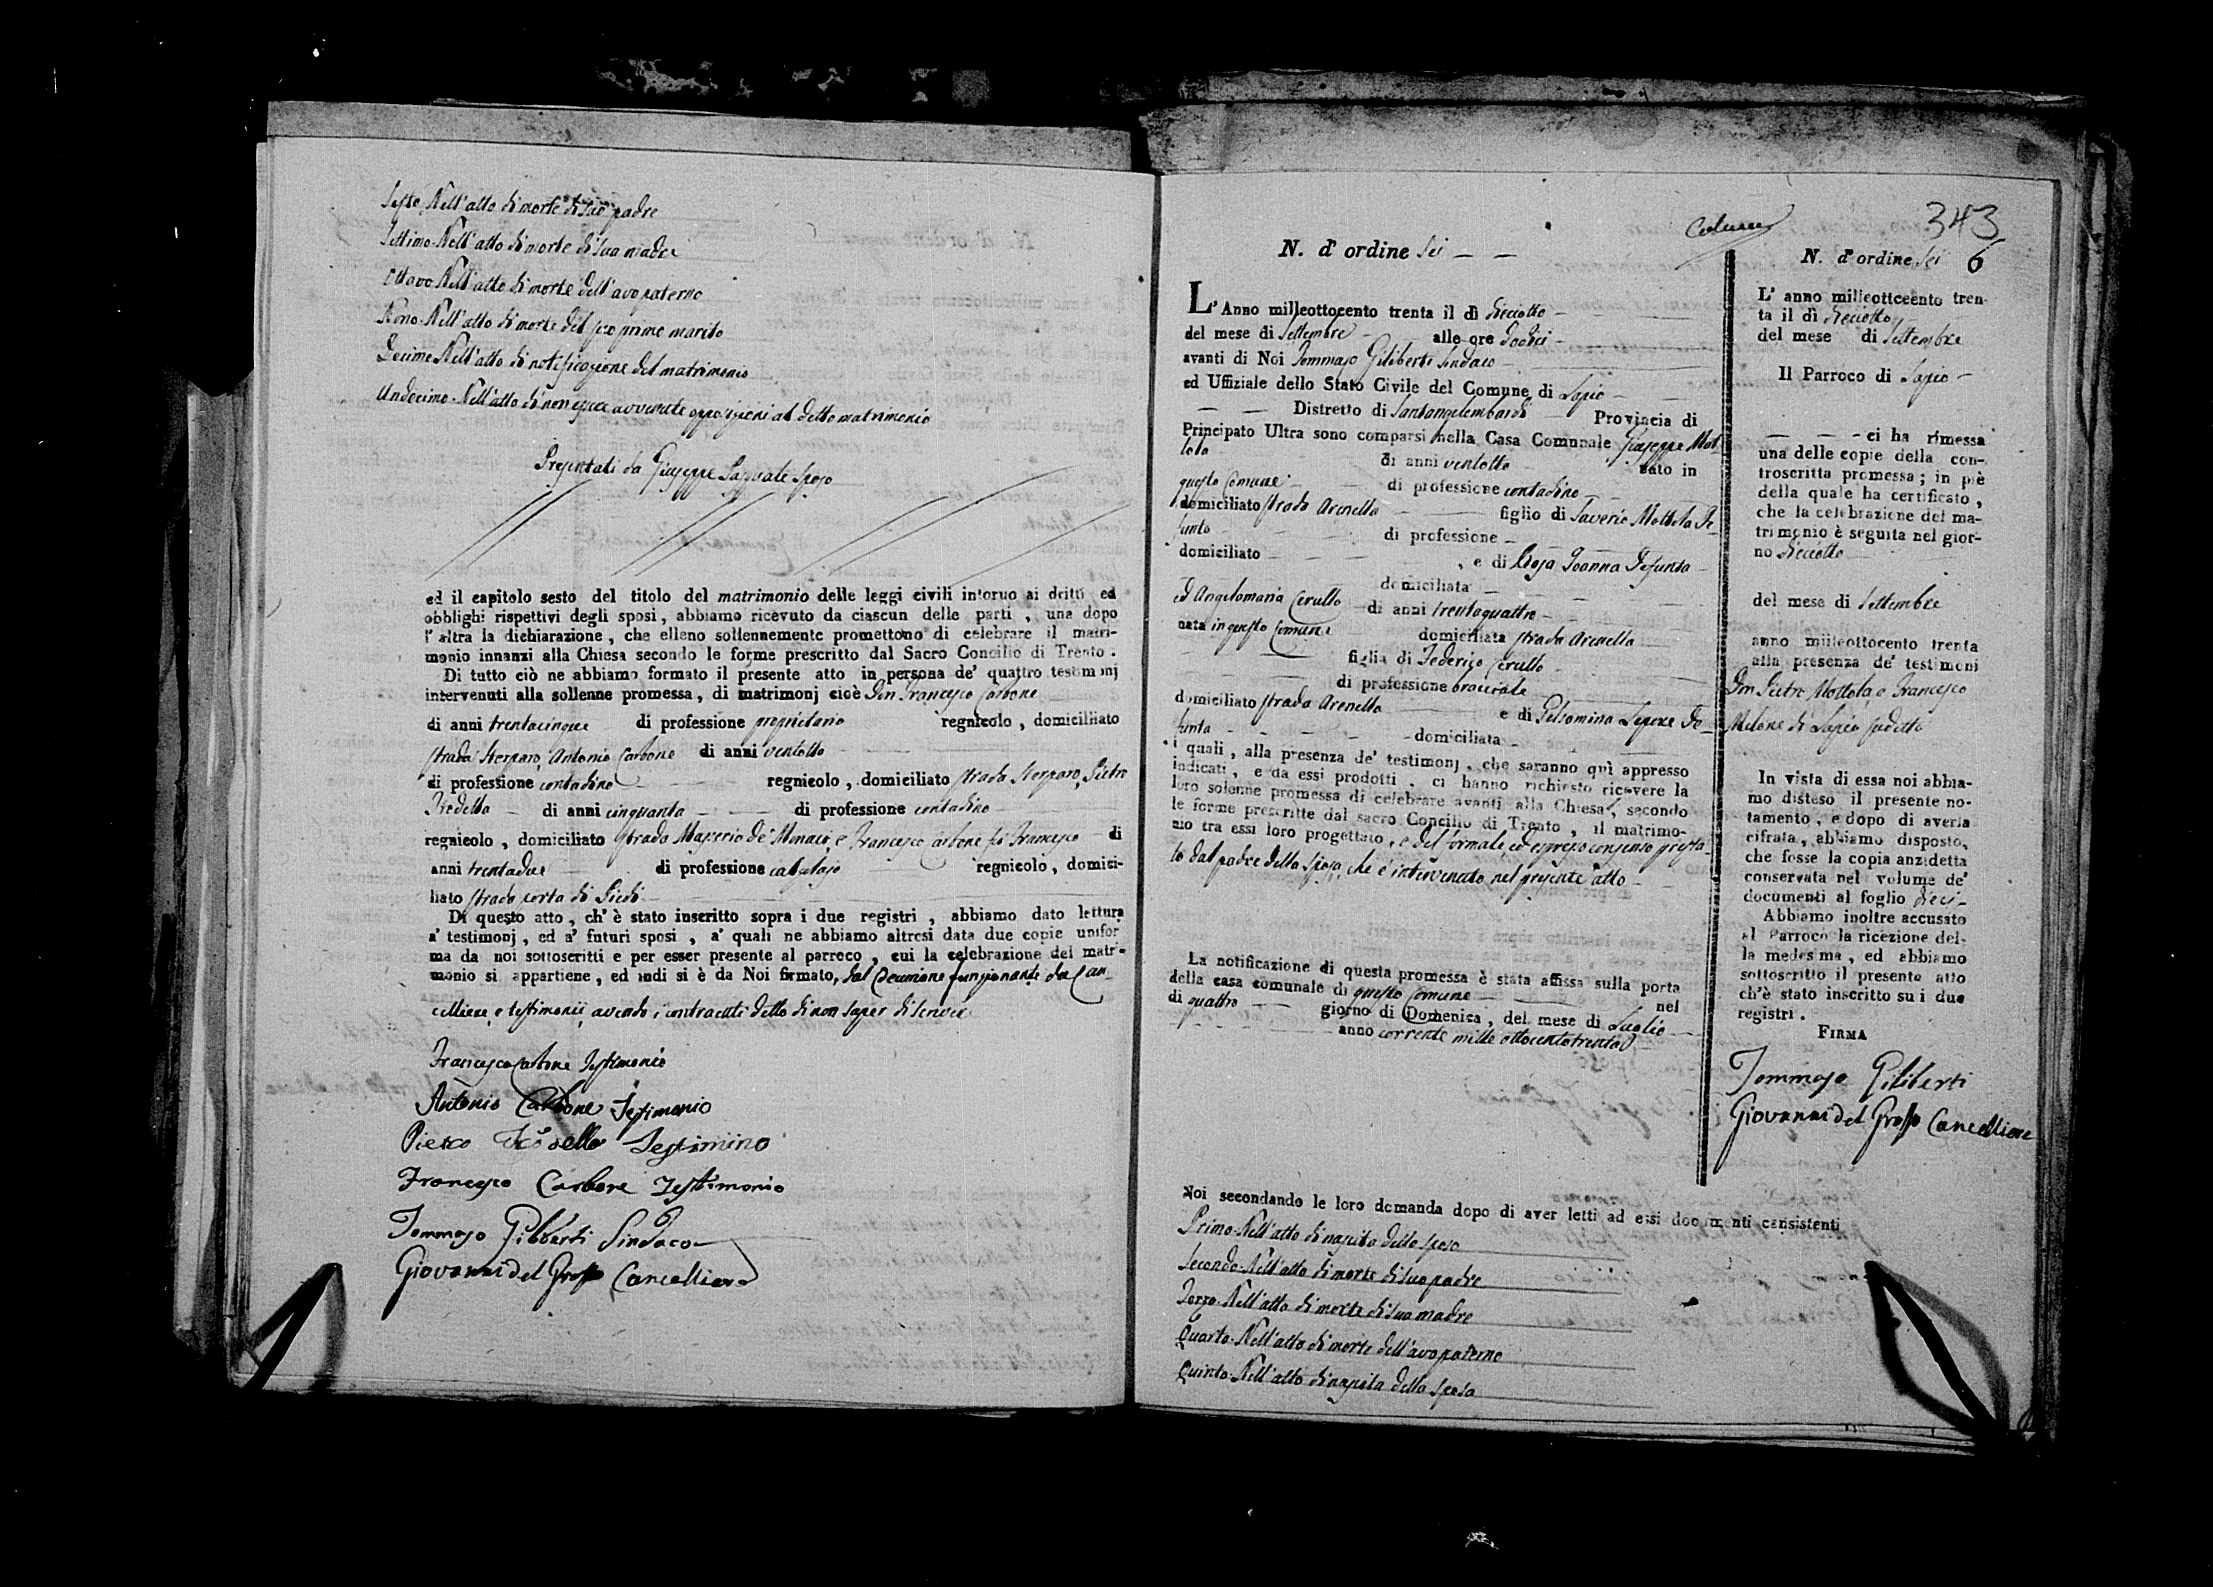 Sesto, Nell'atto di morte di suo padre
Settimo. Nell'atto di morte di sua madre
Ottavo Nell'atto di morte dell'avo paterno
Nono. Nell'atto di morte del suo primo marito
Decimo Nell'atto di notificazione del matrimonio
Undecimo. Nell'atto di non essere avvenute opposizioni al detto matrimonio
Presentati da Giuseppe Pasquale sposo
ed il capitolo sesto del titolo del matrimonio delle leggi civili intorno ai dritti ed
obblighi rispettivi degli sposi, abbiamo ricevuto da ciascun delle parti, una dopo
l'altra la dichiarazione, che elleno sollennemente promettono di celebrare il matri-
monio innanzi alla Chiesa secondo le forme prescritto dal Sacro Concilio di Trento.
Di tutto ciò ne abbiamo formato il presente atto in persona de' quattro testimonj
intervenuti alla sollenne promessa, di matrimonj cioè Don Francesco Carbone
di anni trentacinque di professione proprietario regnicolo, domiciliato
strada Sterparo, Antonio Carbone di anni ventotto
di professione contadino regnicolo, domiciliato strada Sterparo, Pietro
di anni cinquanta di professione contadino
regnicolo, domiciliato strada de' Monaci, e Francesco Carbone fu Francesco di
anni trentadue di professione calzolajo regnicolo, domici-
liato strada porta di
Di questo atto, ch'è stato inscritto sopra i due registri, abbiamo dato lettura
a' testimonj, ed a' futuri sposi, a' quali ne abbiamo altresì data due copie unifor
ma da noi sottoscritti e per esser presente al parroco, cui la celebrazione del matri-
monio si appartiene, ed indi si è da Noi firmato, dal Decurione funzionante da Can-
celliere, e testimonii, avendo i contraenti detto di non saper di scrivere
Francesco Carbone Testimonio
Antonio Carbone Testimonio
Pietro Testimino
Francesco Carbone Testimonio
Tommaso Giliberti Sindaco
Giovanni del Grosso Cancelliere
343
N. d'ordine Sei
L'Anno milleottocento trenta il dì dieciotto
del mese di Settembre alle ore dodici
avanti di Noi Tommaso Giliberti Sindaco
ed Uffiziale dello Stato Civile del Comune di Lapio
Distretto di Santangelombardi Provincia di
Principato Ultra sono comparsi nella Casa Comunale Giuseppe Mot
tola di anni ventotto nato in
questo Comune di professione contadino
domiciliato strada Arenella figlio di Saverio Mottola De
funto di professione
domiciliato , e di Joanna Defunta
domiciliata
ed Angelomaria Cerullo di anni trentaquattro
nata in questo Comune domiciliata strada Arenella
figlia di Federico Cerullo
di professione bracciale
domiciliato strada Arenella e di Gelsomina Lepore De
funta domiciliata
i quali, alla presenza de' testimonj, che saranno quì appresso
indicati, e da essi prodotti, ci hanno richiesto ricevere la
loro solenne promessa di celebrare avanti alla Chiesa, secondo
le forme prescritte dal sacro Concilio di Trento, il matrimo-
nio tra essi loro progettato, e del formale ed espresso consenso presta-
to dal padre della sposa, che è intervenuto nel presente atto
La notificazione di questa promessa è stata affissa sulla porta
della casa comunale di questo Comune nel
dì quattro giorno di Domenica, del mese di Luglio
anno corrente mille ottocentotrenta
Noi secondando le loro domanda dopo di aver letti ad essi documenti consistenti
Primo. Nell'atto di nascita dello sposo
Secondo. Nell'atto di morte di suo padre
Terzo. Nell'atto di morte di sua madre
Quarto. Nell'atto di morte dell'avo paterno
Quinto. Nell'atto di nascita della sposa
N. d'ordine Sei 6
L'anno milleottocento tren-
ta il dì dieciotto
del mese di Settembre
Il Parroco di Lapio
ci ha rimessa
una delle copie della con-
troscritta promessa; in piè
della quale ha certificato,
che la celebrazione del ma-
trimonio è seguita nel gior-
no dieciotto
del mese di Settembre
anno milleottocento trenta
alla presenza de' testimoni
Don Pietro Mottola, e Francesco
Milone di Lapio sudetto
In vista di essa noi abbia-
mo disteso il presente no-
tamento, e dopo di averla
cifrata, abbiamo disposto,
che fosse la copia anzidetta
conservata nel volume de'
documenti al foglio dieci
Abbiamo inoltre accusato
al Parroco la ricezione del-
la medesima, ed abbiamo
sottoscritto il presente atto
ch'è stato inscritto su i due
registri.
FIRMA
Tommaso Giliberti
Giovanni del Grosso Cancelliere